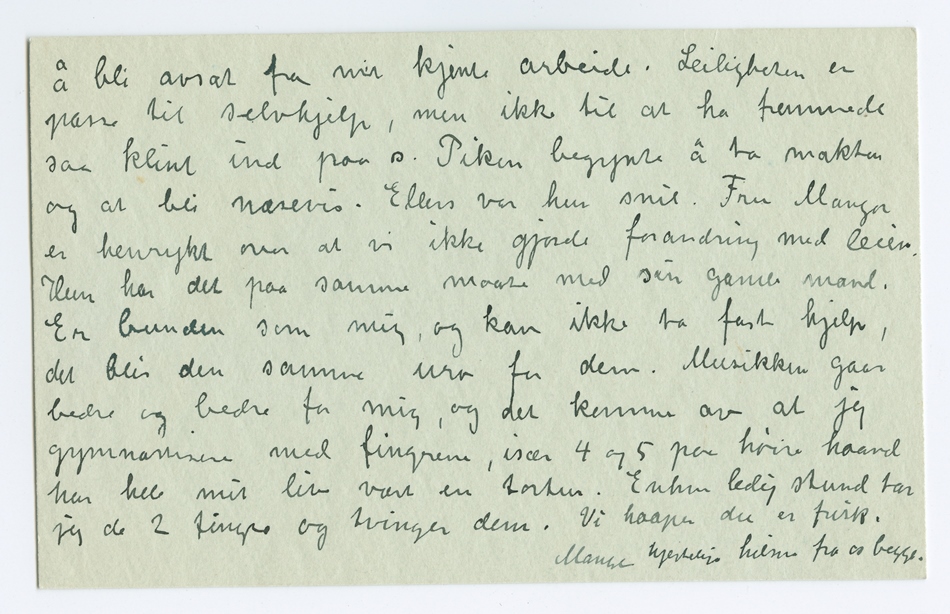 å bli avsat fra mit kjente arbeide. Leiligheten er
passe til selvhjelp, men ikke til at ha fremmede
saa klint ind paa s. Piken begynte å ta makten
og at bli næsevis. Ellers var hun snil. Fru Mangor
er henrykt over at vi ikke gjorde forandring med leien.
Hun har det paa samme maate med sin gamle mand.
Er bunden som mig, og kan ikke ta fast hjelp,
det blir den samme uro for dem. Musikken gaar
bedre og bedre for mig, og det kommer av at jeg
gymnastisere med fingrene, især 4 og 5 paa høire haand
har hele mit liv vært en tortur. Enhver ledig stund tar
jeg de 2 fingre og tvinger dem. Vi haaper du er frisk.
Mange hjertelige hilsner fra os begge.